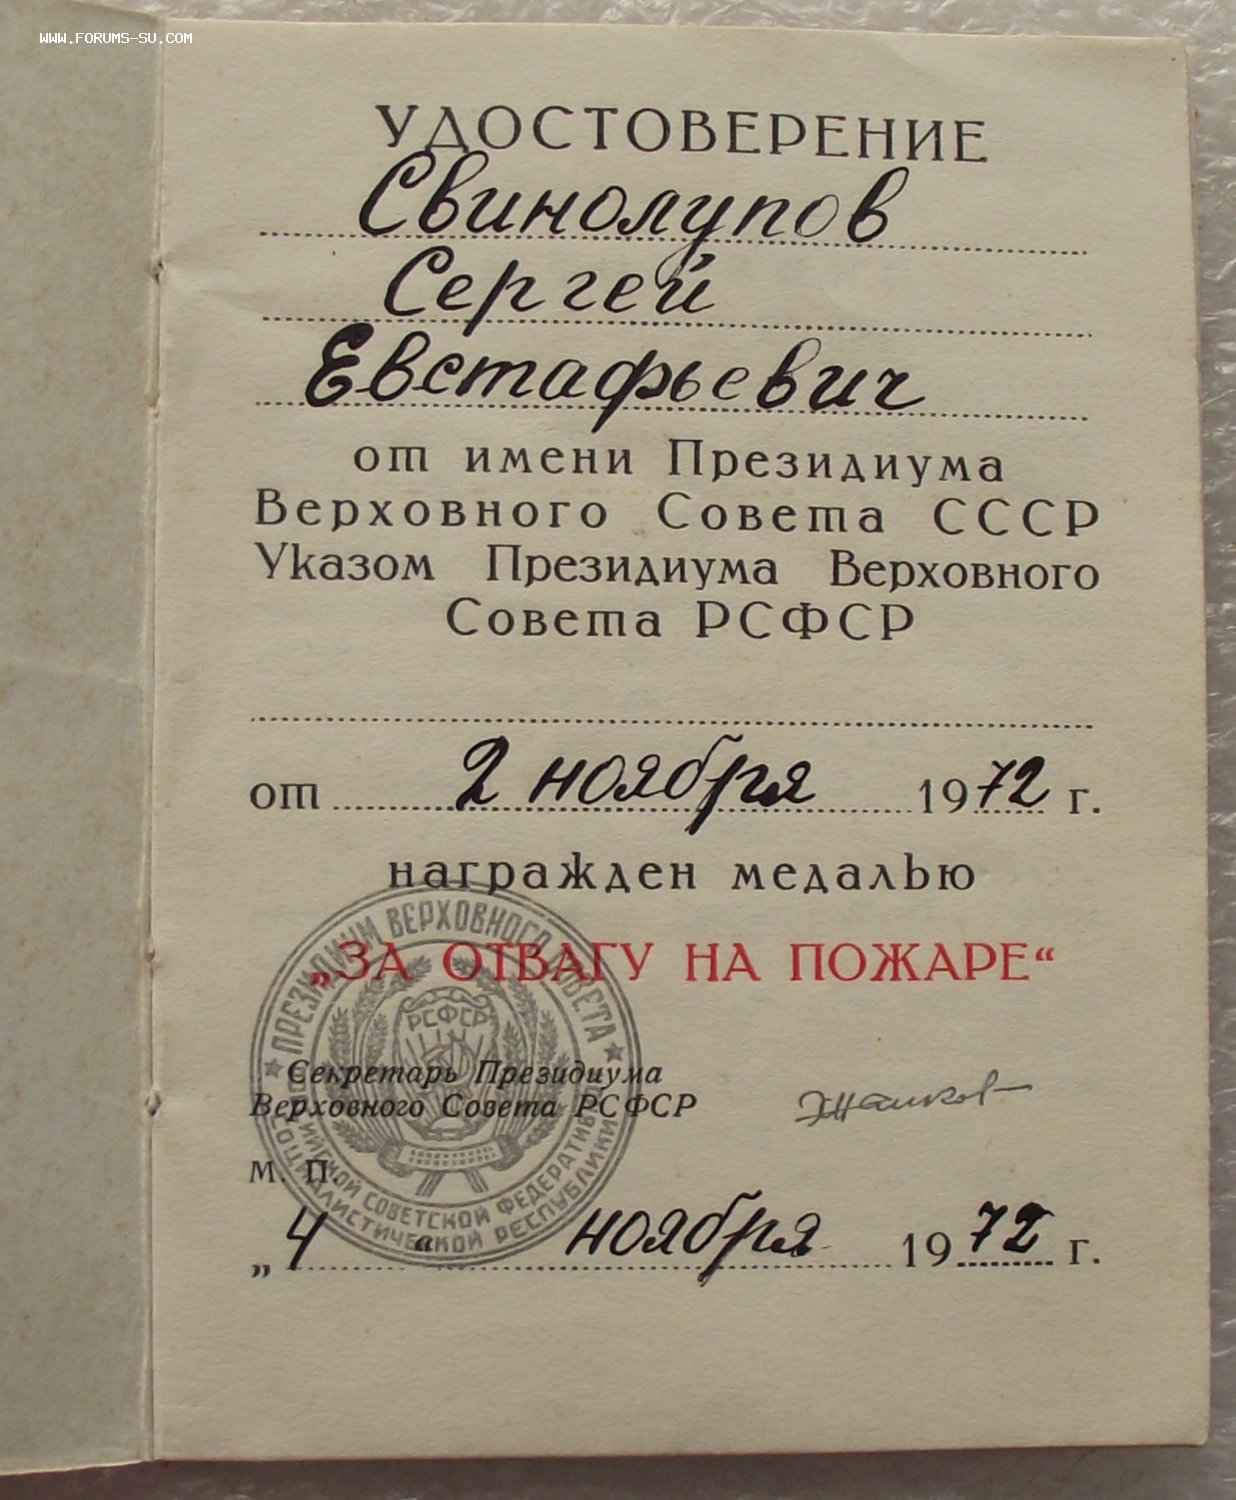 WWW.FORUMS-SU.COM
УДОСТОВЕРЕНИЕ
Свинолупов
Сергей
Евстафьевич
от имени Президиума
Верховного Совета СССР
Указом Президиума Верховного
Совета РСФСР
от 2 ноября 1972 г.
награжден медалью
„ЗА ОТВАГУ НА ПОЖАРЕ“
ПРЕЗИДИУМ ВЕРХОВНОГО СОВЕТА
РСФСР
СОВЕТСКОЙ ФЕДЕРАТИВНОЙ
СОЦИАЛИСТИЧЕСКОЙ РЕСПУБЛИКИ
Секретарь Президиума
Верховного Совета РСФСР
М. П.
„4“ ноября 1972 г.